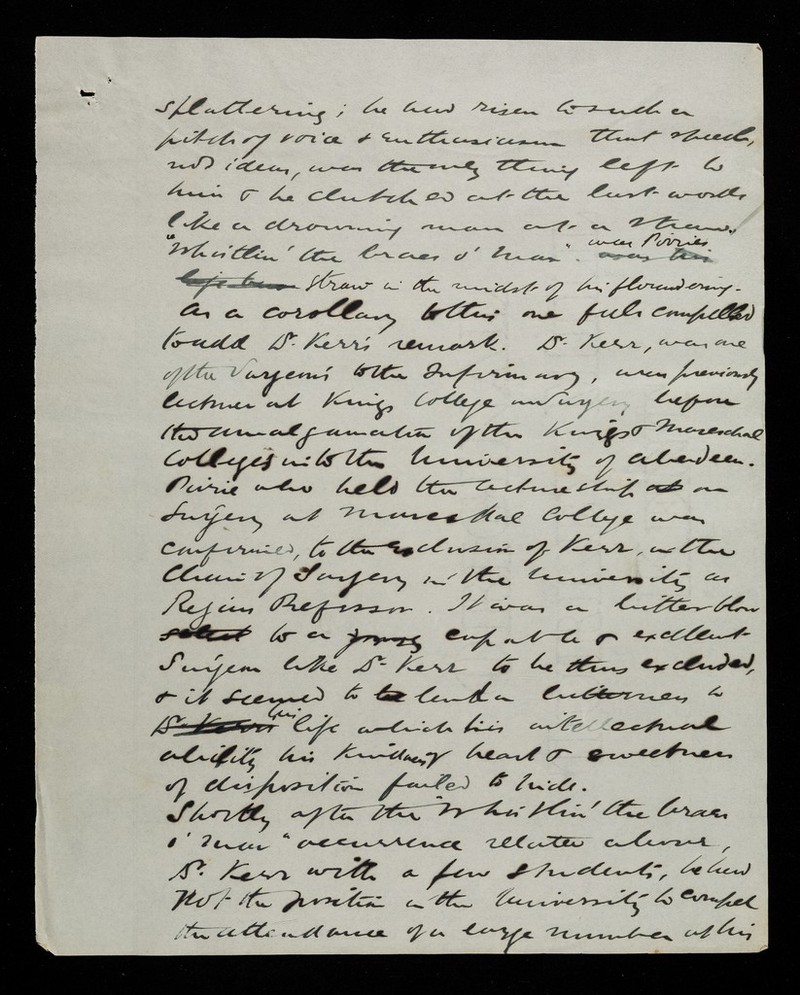 spluttering; he had risen to such a
pitch of voice & enthusiasm that speech,
not ideas, was the only thing left to
him & he clutched at the last words
like a drowning man at a straw.
"Whistlin' the braes o' Mar" was Pirries
straw in the midst of his floundering.
As a corollary to this one feels compelled
to add Dr. Kerr's remark. Dr. Kerr, was one
of the Surgeons to the Infirmary, was previously
lecturer at Kings College on Surgery before
the amalgamation of the Kings & Mareschal
Colleges into the University of Aberdeen.
Pirrie who held the lectureship at on
Surgery at Mareskal College was
confirmed, to the exclusion of Kerr, in the
Chair of Surgery in the University as
Regius Professor. It was a bitter blow
to a young capable & excellent
Surgeon like Dr. Kerr to be thus excluded,
& it seemed to lend a bitterness to
his life which his intellectual
ability his kindness of heart & sweetness
of disposition failed to hide.
Shortly after the "Whistlin' the braes
o' Mar" occurrence related above,
Dr. Kerr with a few students, he had
not the position in the University to compel
the attendance of a large number at his